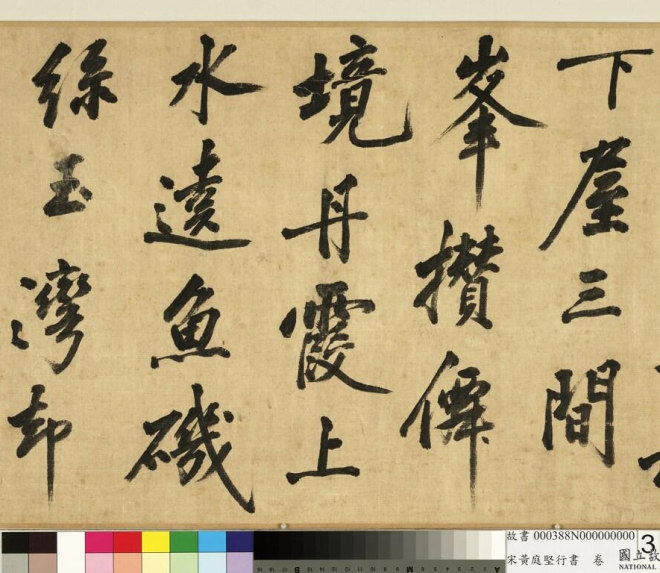 下屋三間
峯攢僊
境丹霞上
水遶魚磯
絲玉灣却
故書 000388N000000000
3
宋黃庭堅行書 卷
國立故
NATIONAL